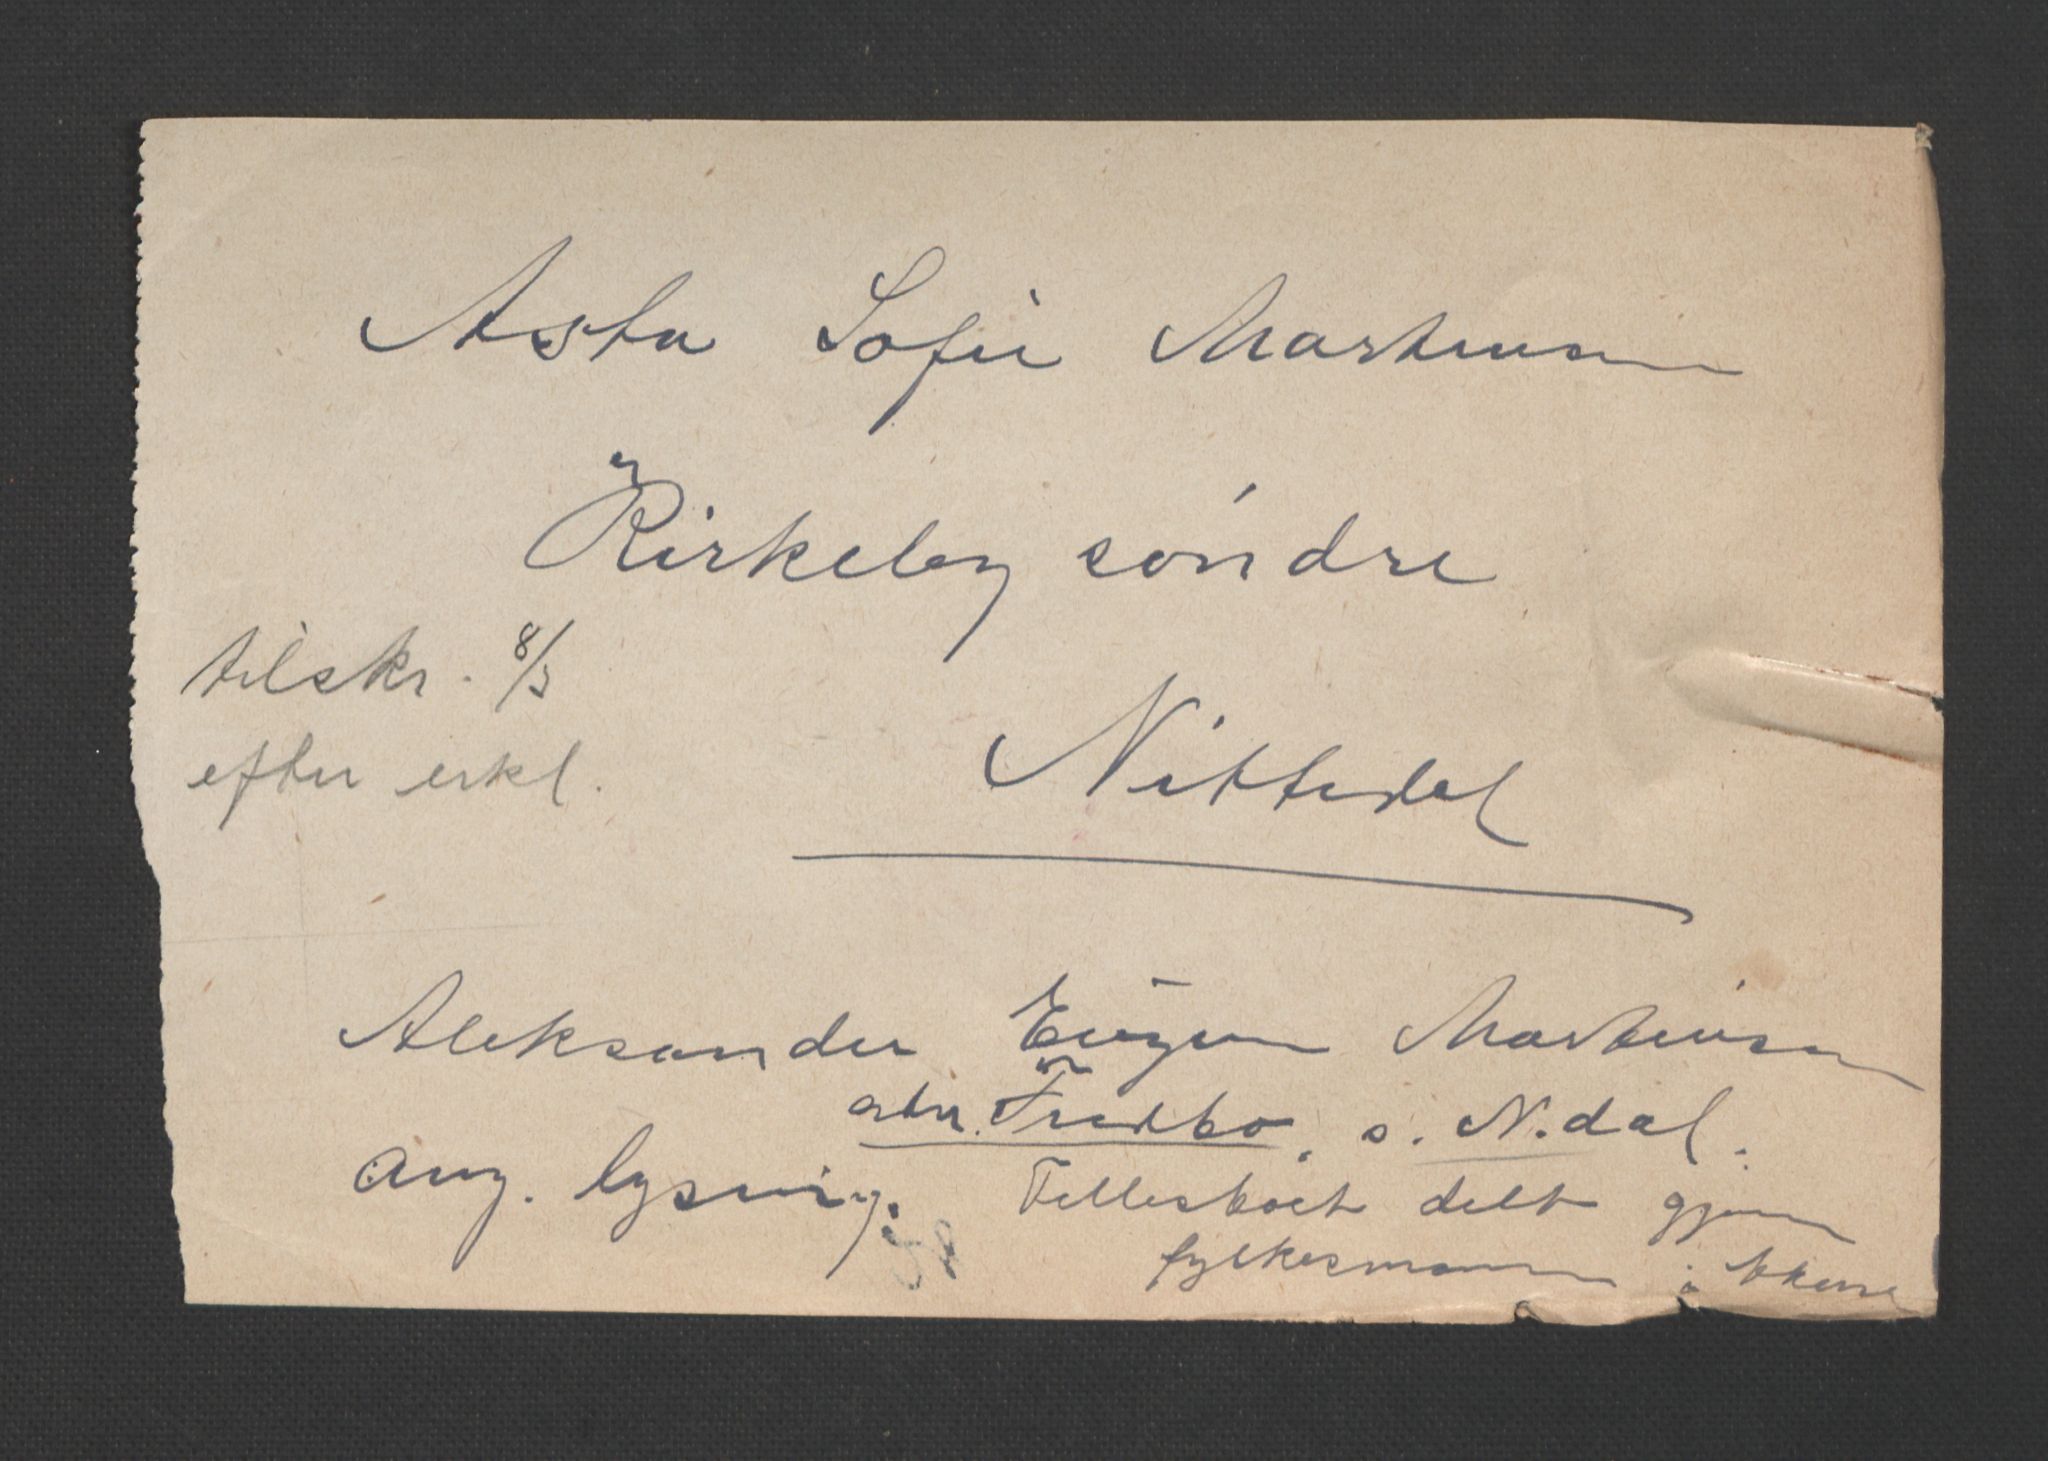 Asta Sofie Martinsen
Kirkeby søndre
tilskr. 8/3
efter erkl.
Nittedal
Aleksander Eugen Martinsen
adr. Fredbo, s. N.dal.
ang. lysning. Fellesboet delt gjennem
fylkesmannen i Akers